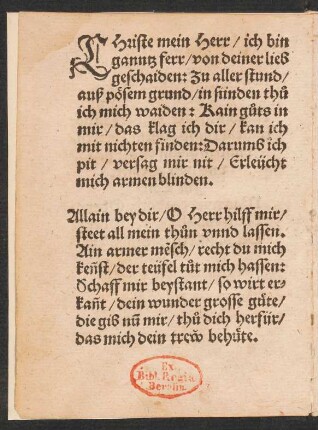 CHriste mein Herr / ich bin
ganntz ferr / von deiner lieb
geschaiden: Zu aller stund /
auß pösem grund / in sünden thů
ich mich waiden : Kain gůts in
mir / das klag ich dir / kan ich
mit nichten finden: Darumb ich
pit / versag mir nit / Erleücht
mich armen blinden.
Allain bey dir / O Herr hilff mir /
steet all mein thůn vnnd lassen.
Ain armer mẽsch / recht du mich
keñst / der teüfel tůt mich hassen:
Schaff mir beystant / so wirt er-
kañt / dein wunder grosse gůte /
die gib nũ mir / thů dich herfür /
das mich dein trew behůte.
Ex
Bibl. Regia
Berolin.